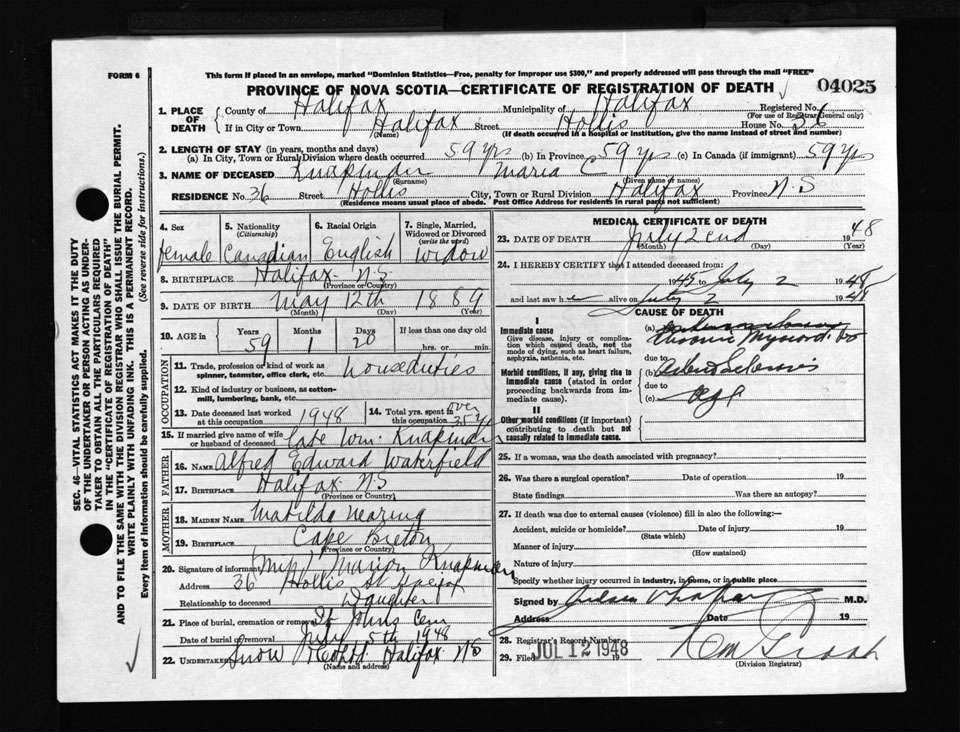 FORM 6
This form if placed in an envelope, marked "Dominion Statistics—Free, penalty for improper use $300," and properly addressed will pass through the mail "FREE"
PROVINCE OF NOVA SCOTIA—CERTIFICATE OF REGISTRATION OF DEATH
04025
1. PLACE OF DEATH
County of Halifax Municipality of Halifax Registered No.
(For use of Registrar General only)
If in City or Town Halifax Street Hollis House No. 36
(Name) (If death occurred in a hospital or institution, give the name instead of street and number)
2. LENGTH OF STAY (in years, months and days)
(a) In City, Town or Rural Division where death occurred 59 yrs (b) In Province 59 yrs (c) In Canada (if immigrant) 59 yrs
3. NAME OF DECEASED Knapman Maria C
(Surname) (Given name or names)
RESIDENCE No. 36 Street Hollis City, Town or Rural Division Halifax Province N.S
(Residence means usual place of abode. Post Office Address for residents in rural parts not sufficient)
4. Sex
female
5. Nationality
(Citizenship)
Canadian
6. Racial Origin
English
7. Single, Married, Widowed or Divorced
(write the word)
Widow
8. BIRTHPLACE Halifax N.S
(Province or Country)
9. DATE OF BIRTH May 12th 1889
(Month) (Day) (Year)
10. AGE in
Years Months Days If less than one day old
59 1 20 hrs. or min.
OCCUPATION
11. Trade, profession or kind of work as spinner, teamster, office clerk, etc. housedutīes
12. Kind of industry or business, as cotton-mill, lumbering, bank, etc.
13. Date deceased last worked at this occupation 1948
14. Total yrs. spent in this occupation over 35 y
15. If married give name of wife or husband of deceased late Wm. Knapman
FATHER
16. NAME Alfred Edward Waterfield
17. BIRTHPLACE Halifax N.S
(Province or Country)
MOTHER
18. MAIDEN NAME Matilda Nearing
19. BIRTHPLACE Cape Breton
(Province or Country)
20. Signature of informant Marion Knapman
Address 36 Hollis St Halifax
Relationship to deceased Daughter
21. Place of burial, cremation or removal St Johns Cem
Date of burial or removal July 5th 1948
22. Undertaker Snow Halifax NS
(Name and address)
MEDICAL CERTIFICATE OF DEATH
23. DATE OF DEATH July 2end 1948
(Month) (Day) (Year)
24. I HEREBY CERTIFY that I attended deceased from:
1945 to July 2 1948
and last saw h alive on July 2 1948
CAUSE OF DEATH
I
Immediate cause
Give disease, injury or complication which caused death, not the mode of dying, such as heart failure, asphyxia, asthenia, etc.
(a)
due to
Morbid conditions, if any, giving rise to immediate cause (stated in order proceeding backwards from immediate cause).
(b)
due to
(c) age
II
Other morbid conditions (if important) contributing to death but not causally related to immediate cause.
25. If a woman, was the death associated with pregnancy?
26. Was there a surgical operation? Date of operation 19
State findings Was there an autopsy?
27. If death was due to external causes (violence) fill in also the following:—
Accident, suicide or homicide? Date of injury 19
(State which)
Manner of injury
(How sustained)
Nature of injury
Specify whether injury occurred in industry, in home, or in public place
Signed by M.D.
Address Date 19
28. Registrar's Record Number
29. Filed JUL 12 1948 19
(Division Registrar)
SEC. 46—VITAL STATISTICS ACT MAKES IT THE DUTY
OF THE UNDERTAKER OR PERSON ACTING AS UNDER-
TAKER TO OBTAIN ALL THE PARTICULARS REQUIRED
IN THE "CERTIFICATE OF REGISTRATION OF DEATH"
AND TO FILE THE SAME WITH THE DIVISION REGISTRAR WHO SHALL ISSUE THE BURIAL PERMIT.
WRITE PLAINLY WITH UNFADING INK. THIS IS A PERMANENT RECORD.
Every item of information should be carefully supplied. (See reverse side for instructions.)